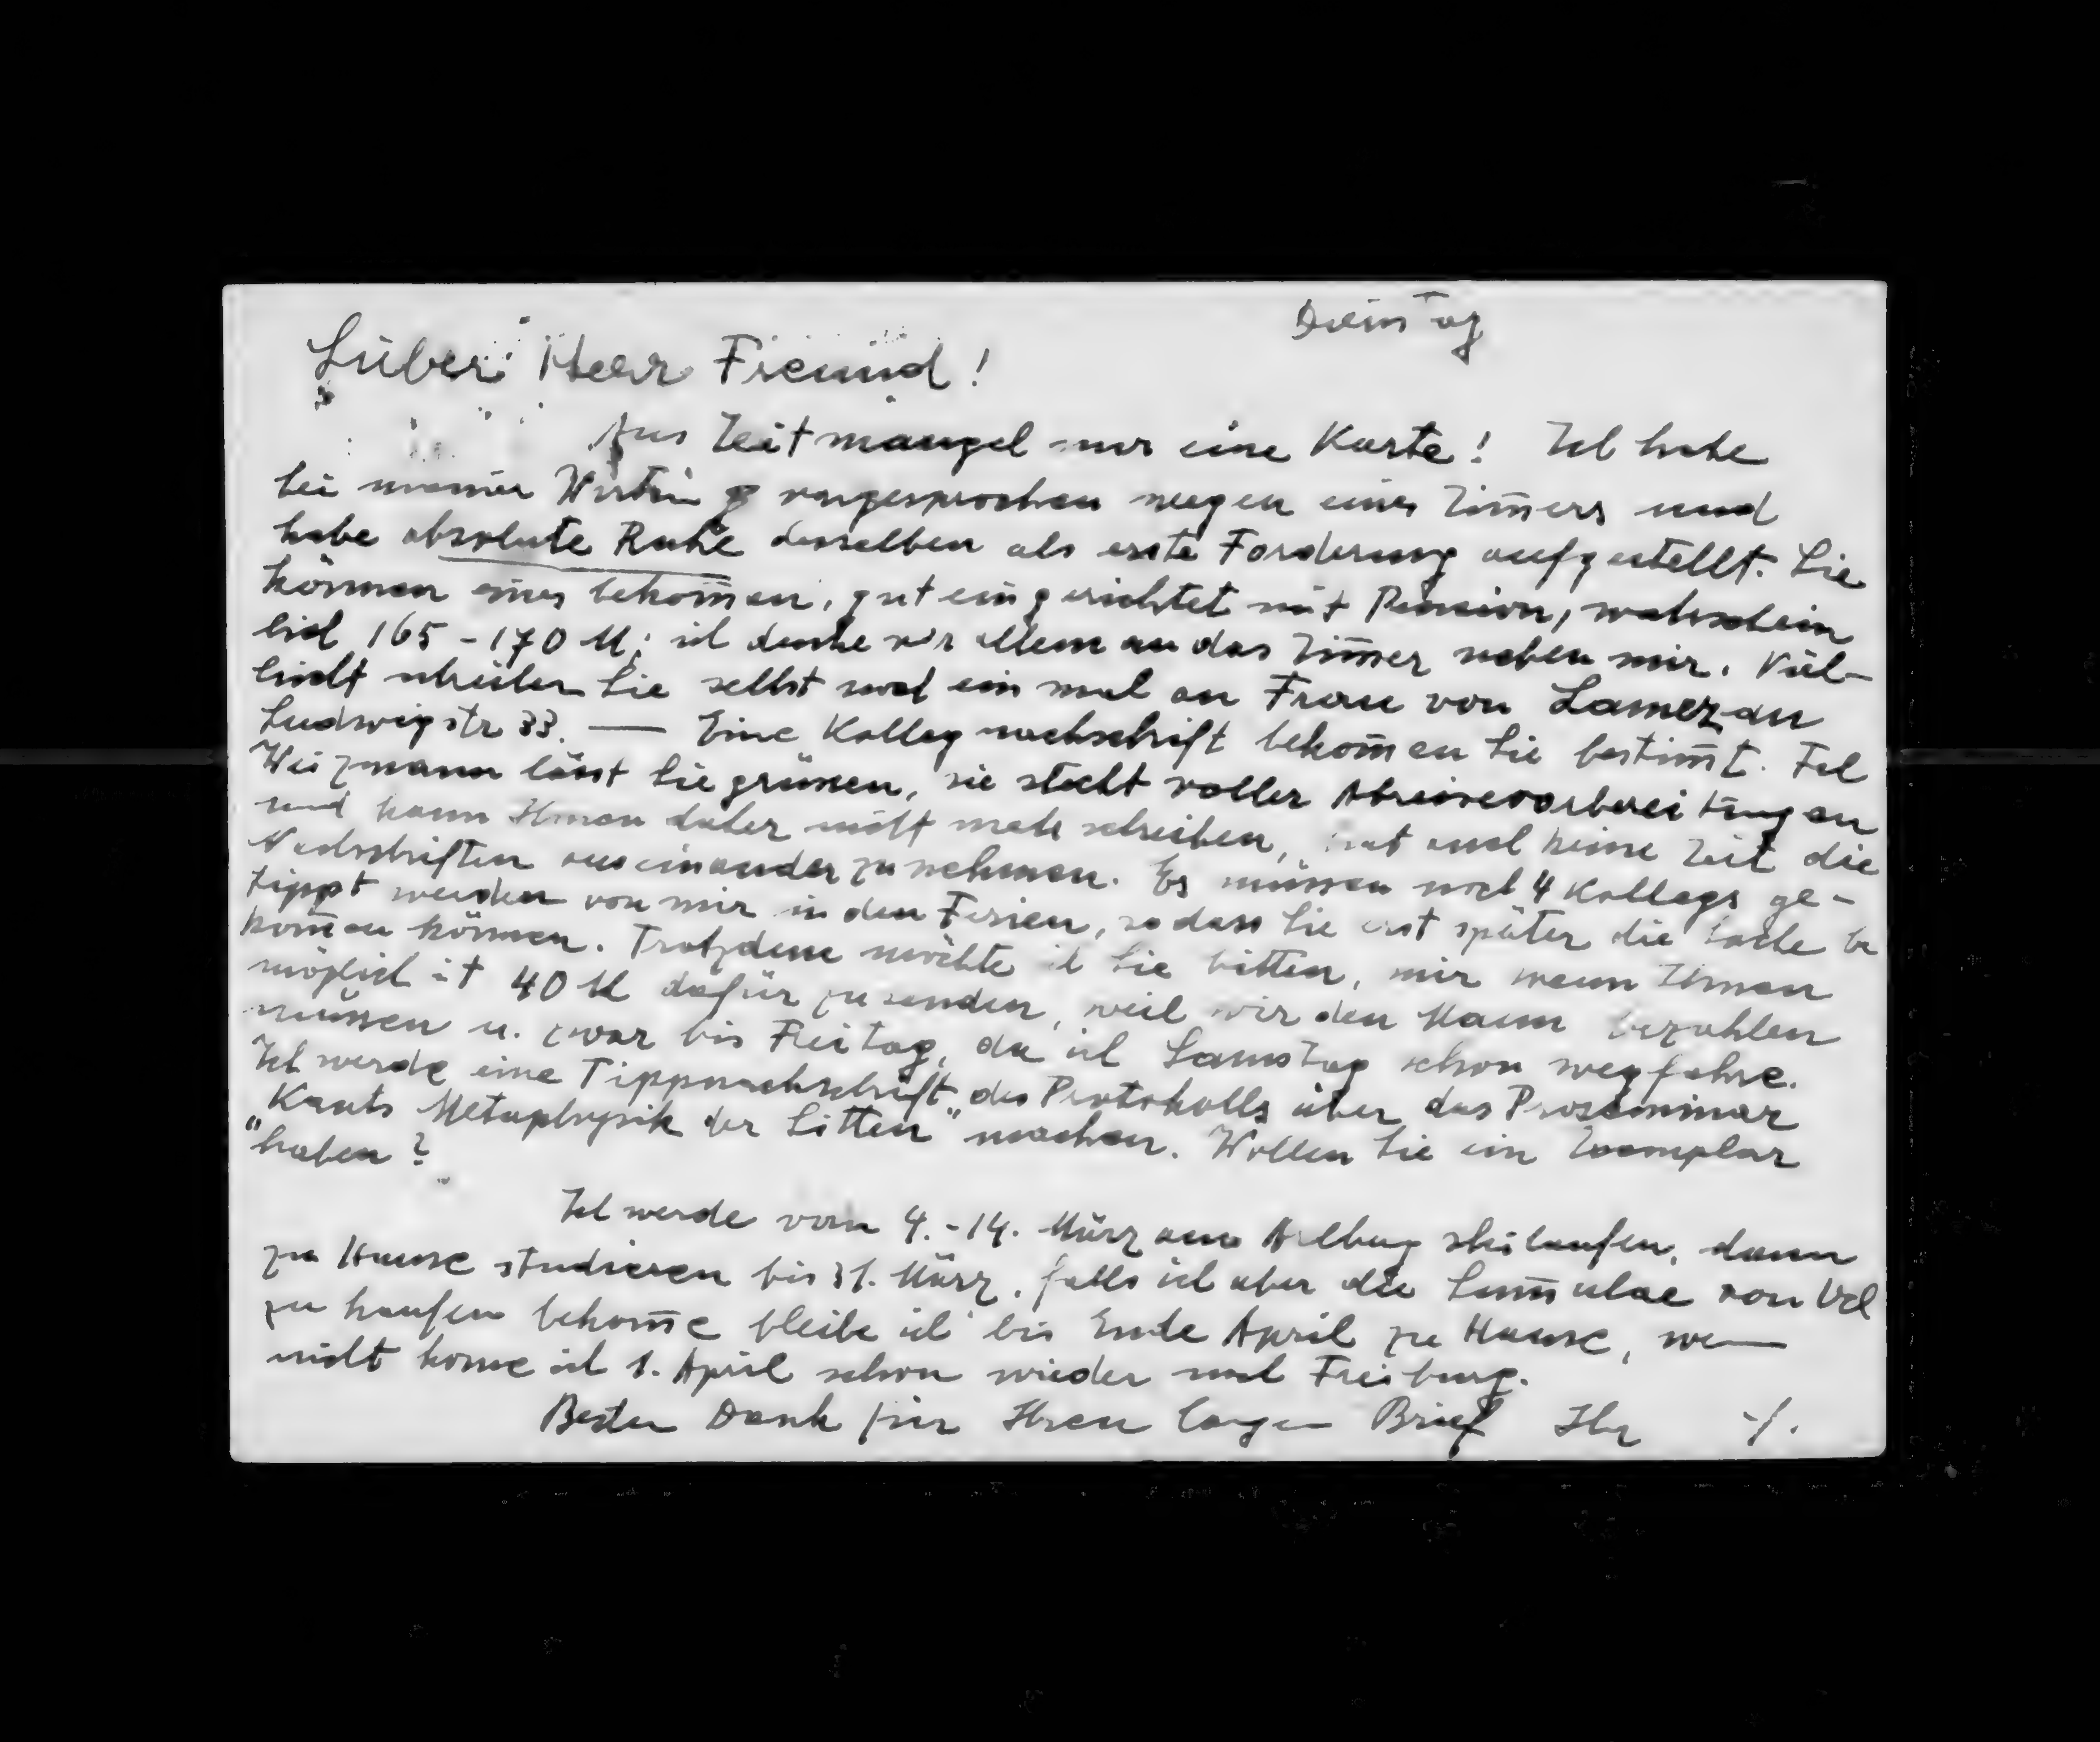 Dienstag
Lieber Herr Freund!
Aus Zeitmangel nur eine Karte! Ich habe
bei meiner Wirtin vorgesprochen wegen eines Zim̅ers und
habe absolute Ruhe desselben als erste Forderung aufgestellt. Sie
können eines bekom̅en, gut eingerichtet mit Pension, wahrschein
lich 165-170 M; ich denke vor allem an das Zim̅er neben mir. Viel-
leicht schreiben Sie selbst noch ein mal an Frau von Lamezan
Ludwigstr 33. — Eine Kollegnachschrift bekom̅en Sie bestim̅t. Frl
Weizmann lässt Sie grüssen, sie steckt voller Abreisevorbereitungen
und kann Ihnen daher nicht mehr schreiben, hat auch keine Zeit die
Nachschriften auseinander zu nehmen. Es müssen noch 4 Kollegs ge-
tippt werden von mir in den Ferien, sodass Sie erst später die Sache be
kom̅en können. Trotzdem möchte ich Sie bitten, mir wenn Ihnen
möglich ist 40 M dafür zu senden, weil wir den Mann bezahlen
müssen u. zwar bis Freitag, da ich Samstag schon wegfahre.
Ich werde eine Tippnachschrift des Protokolls über das Proseminar
„Kants Metaphysik der Sitten“ machen. Wollen Sie ein Exemplar
haben?
Ich werde vom 4.-14. März am Arlberg skilaufen, dann
zu Hause studieren bis 31. März, falls ich aber die Sum̅ulae von
zu kaufen bekom̅e bleibe ich bis Ende April zu Hause, wenn
nicht kome ich 1. April schon wieder nach Freiburg.
Besten Dank für Ihren langen Brief Ihr ./.